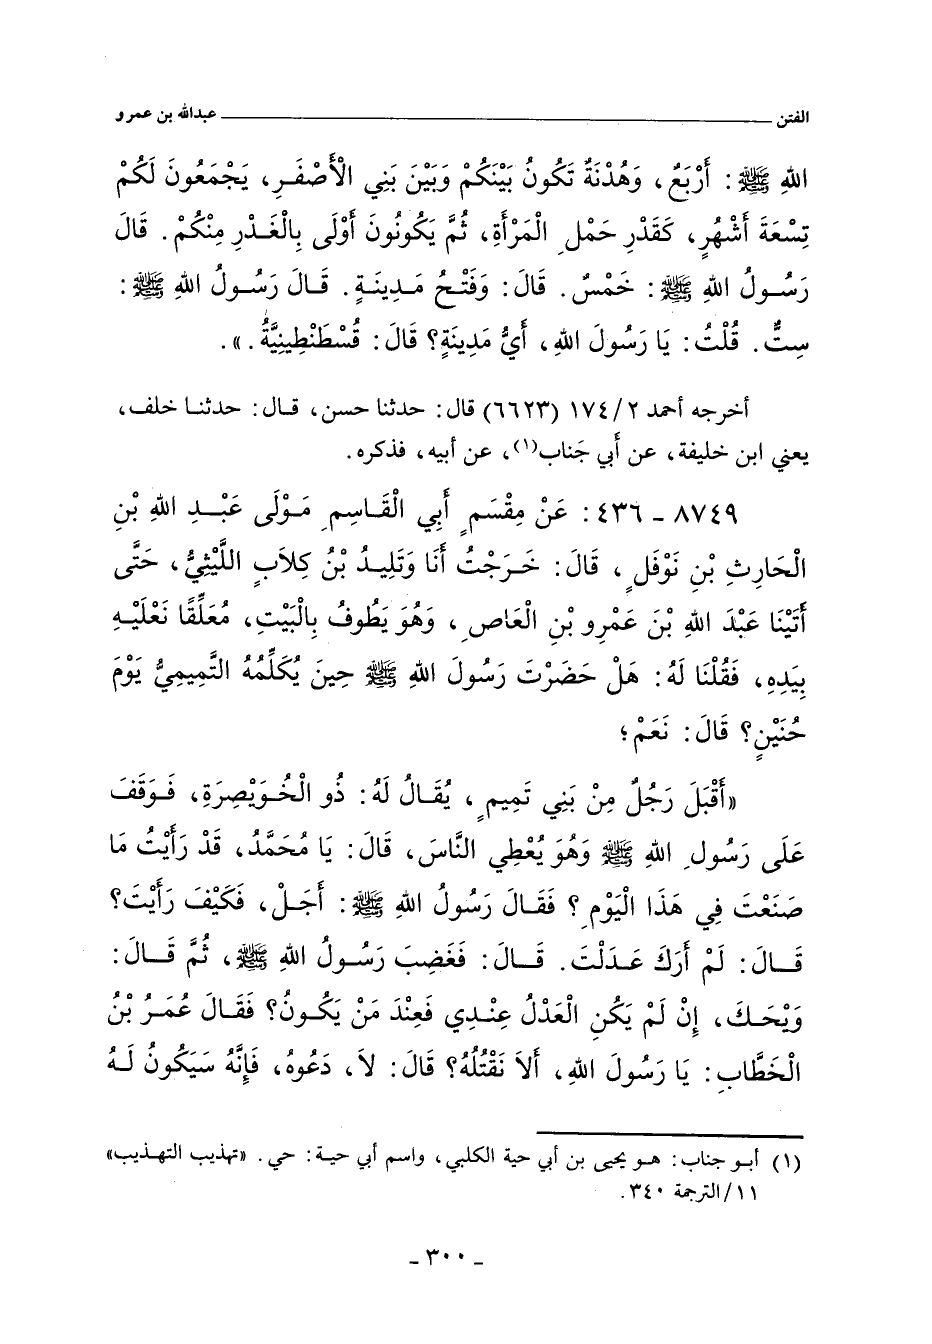 الفتن ـــــــــــــــــــــــــــــــــــــــــــ عبدالله بن عمرو
اللهِ ﷺ: أَرْبَعٌ، وَهُدْنَةٌ تَكُونُ بَيْنَكُمْ وَبَيْنَ بَنِي الْأَصْفَرِ، يَجْمَعُونَ لَكُمْ
تِسْعَةَ أَشْهُرٍ، كَقَدْرِ حَمْلِ الْمَرْأَةِ، ثُمَّ يَكُونُونَ أَوْلَى بِالْغَدْرِ مِنْكُمْ. قَالَ
رَسُولُ اللهِ ﷺ: خَمْسٌ. قَالَ: وَفَتْحُ مَدِينَةٍ. قَالَ رَسُولُ اللهِ ﷺ:
سِتٌّ. قُلْتُ: يَا رَسُولَ اللهِ، أَيُّ مَدِينَةٍ؟ قَالَ: قُسْطَنْطِينِيَّةُ.».
أخرجه أحمد ٢/ ١٧٤ (٦٦٢٣) قال: حدثنا حسن، قال: حدثنا خلف،
يعني ابن خليفة، عن أَبي جَناب(١)، عن أبيه، فذكره.
٨٧٤٩ ـ ٤٣٦: عَنْ مِقْسَمٍ أَبِي الْقَاسِمِ مَوْلَى عَبْدِ اللهِ بْنِ
الْحَارِثِ بْنِ نَوْفَلٍ، قَالَ: خَرَجْتُ أَنَا وَتَلِيدُ بْنُ كِلاَبٍ اللَّيْثِيُّ، حَتَّى
أَتَيْنَا عَبْدَ اللهِ بْنَ عَمْرِو بْنِ الْعَاصِ، وَهُوَ يَطُوفُ بِالْبَيْتِ، مُعَلِّقًا نَعْلَيْهِ
بِيَدِهِ، فَقُلْنَا لَهُ: هَلْ حَضَرْتَ رَسُولَ اللهِ ﷺ حِينَ يُكَلِّمُهُ التَّمِيمِيُّ يَوْمَ
حُنَيْنٍ؟ قَالَ: نَعَمْ؛
«أَقْبَلَ رَجُلٌ مِنْ بَنِي تَمِيمٍ، يُقَالُ لَهُ: ذُو الْخُوَيْصِرَةِ، فَوَقَفَ
عَلَى رَسُولِ اللهِ ﷺ وَهُوَ يُعْطِي النَّاسَ، قَالَ: يَا مُحَمَّدُ، قَدْ رَأَيْتُ مَا
صَنَعْتَ فِي هَذَا الْيَوْمِ؟ فَقَالَ رَسُولُ اللهِ ﷺ: أَجَلْ، فَكَيْفَ رَأَيْتَ؟
قَالَ: لَمْ أَرَكَ عَدَلْتَ. قَالَ: فَغَضِبَ رَسُولُ اللهِ ﷺ، ثُمَّ قَالَ:
وَيْحَكَ، إِنْ لَمْ يَكُنِ الْعَدْلُ عِنْدِي فَعِنْدَ مَنْ يَكُونُ؟ فَقَالَ عُمَرُ بْنُ
الْخَطَّابِ: يَا رَسُولَ اللهِ، أَلاَ نَقْتُلُهُ؟ قَالَ: لاَ، دَعُوهُ، فَإِنَّهُ سَيَكُونُ لَهُ
(١) أبو جناب: هو يحيى بن أبي حية الكلبي، واسم أبي حية: حي. «تهذيب التهذيب»
١١/الترجمة ٣٤٠.
ـ ٣٠٠ ـ